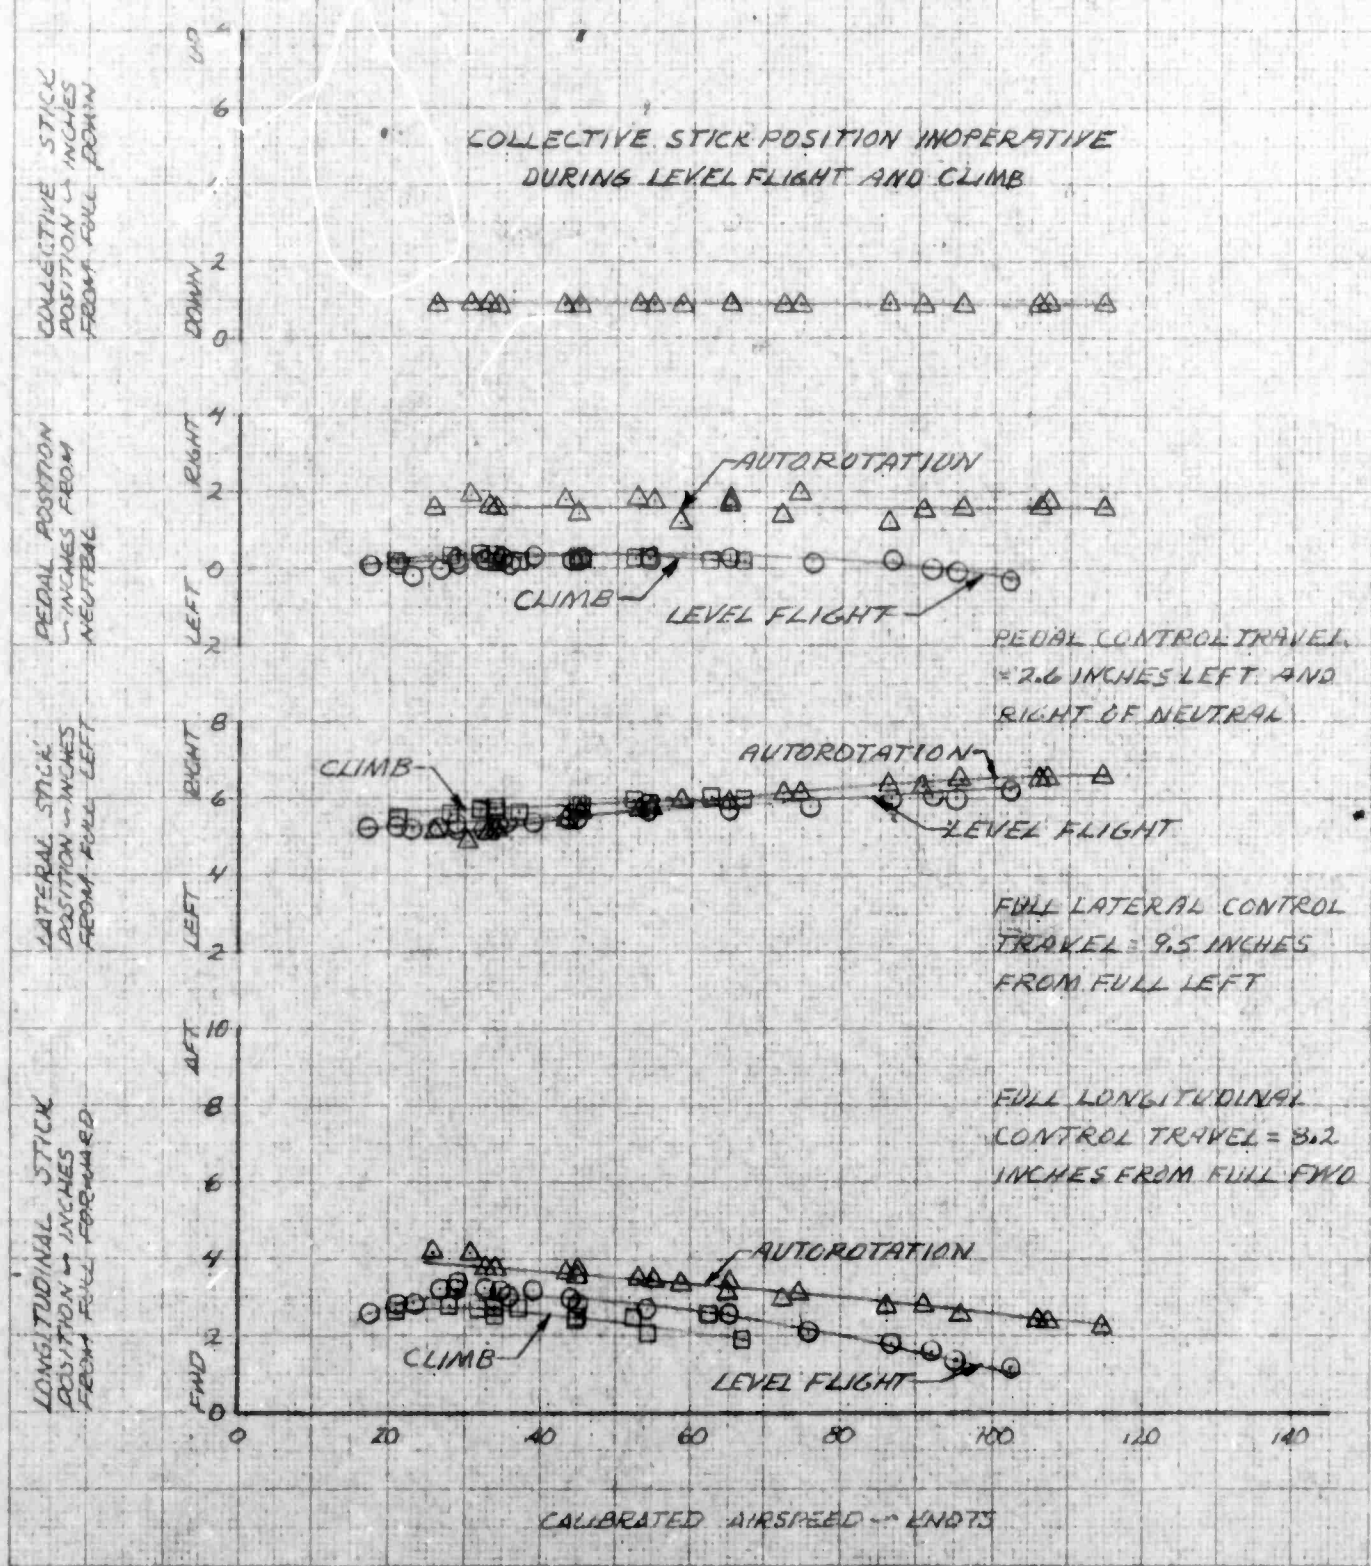 COLLECTIVE STICK
POSITION ~ INCHES
FROM FULL DOWN
UP
DOWN
6
4
2
0
COLLECTIVE STICK POSITION INOPERATIVE
DURING LEVEL FLIGHT AND CLIMB
PEDAL POSITION
~ INCHES FROM
NEUTRAL
RIGHT
LEFT
4
2
0
2
AUTOROTATION
CLIMB
LEVEL FLIGHT
PEDAL CONTROL TRAVEL
= 2.6 INCHES LEFT AND
RIGHT OF NEUTRAL
LATERAL STICK
POSITION ~ INCHES
FROM FULL LEFT
RIGHT
LEFT
8
6
4
2
CLIMB
AUTOROTATION
LEVEL FLIGHT
FULL LATERAL CONTROL
TRAVEL = 9.5 INCHES
FROM FULL LEFT
LONGITUDINAL STICK
POSITION ~ INCHES
FROM FULL FORWARD
AFT
FWD
10
8
6
4
2
0
FULL LONGITUDINAL
CONTROL TRAVEL = 8.2
INCHES FROM FULL FWD
AUTOROTATION
CLIMB
LEVEL FLIGHT
0 20 40 60 80 100 120 140
CALIBRATED AIRSPEED ~ KNOTS